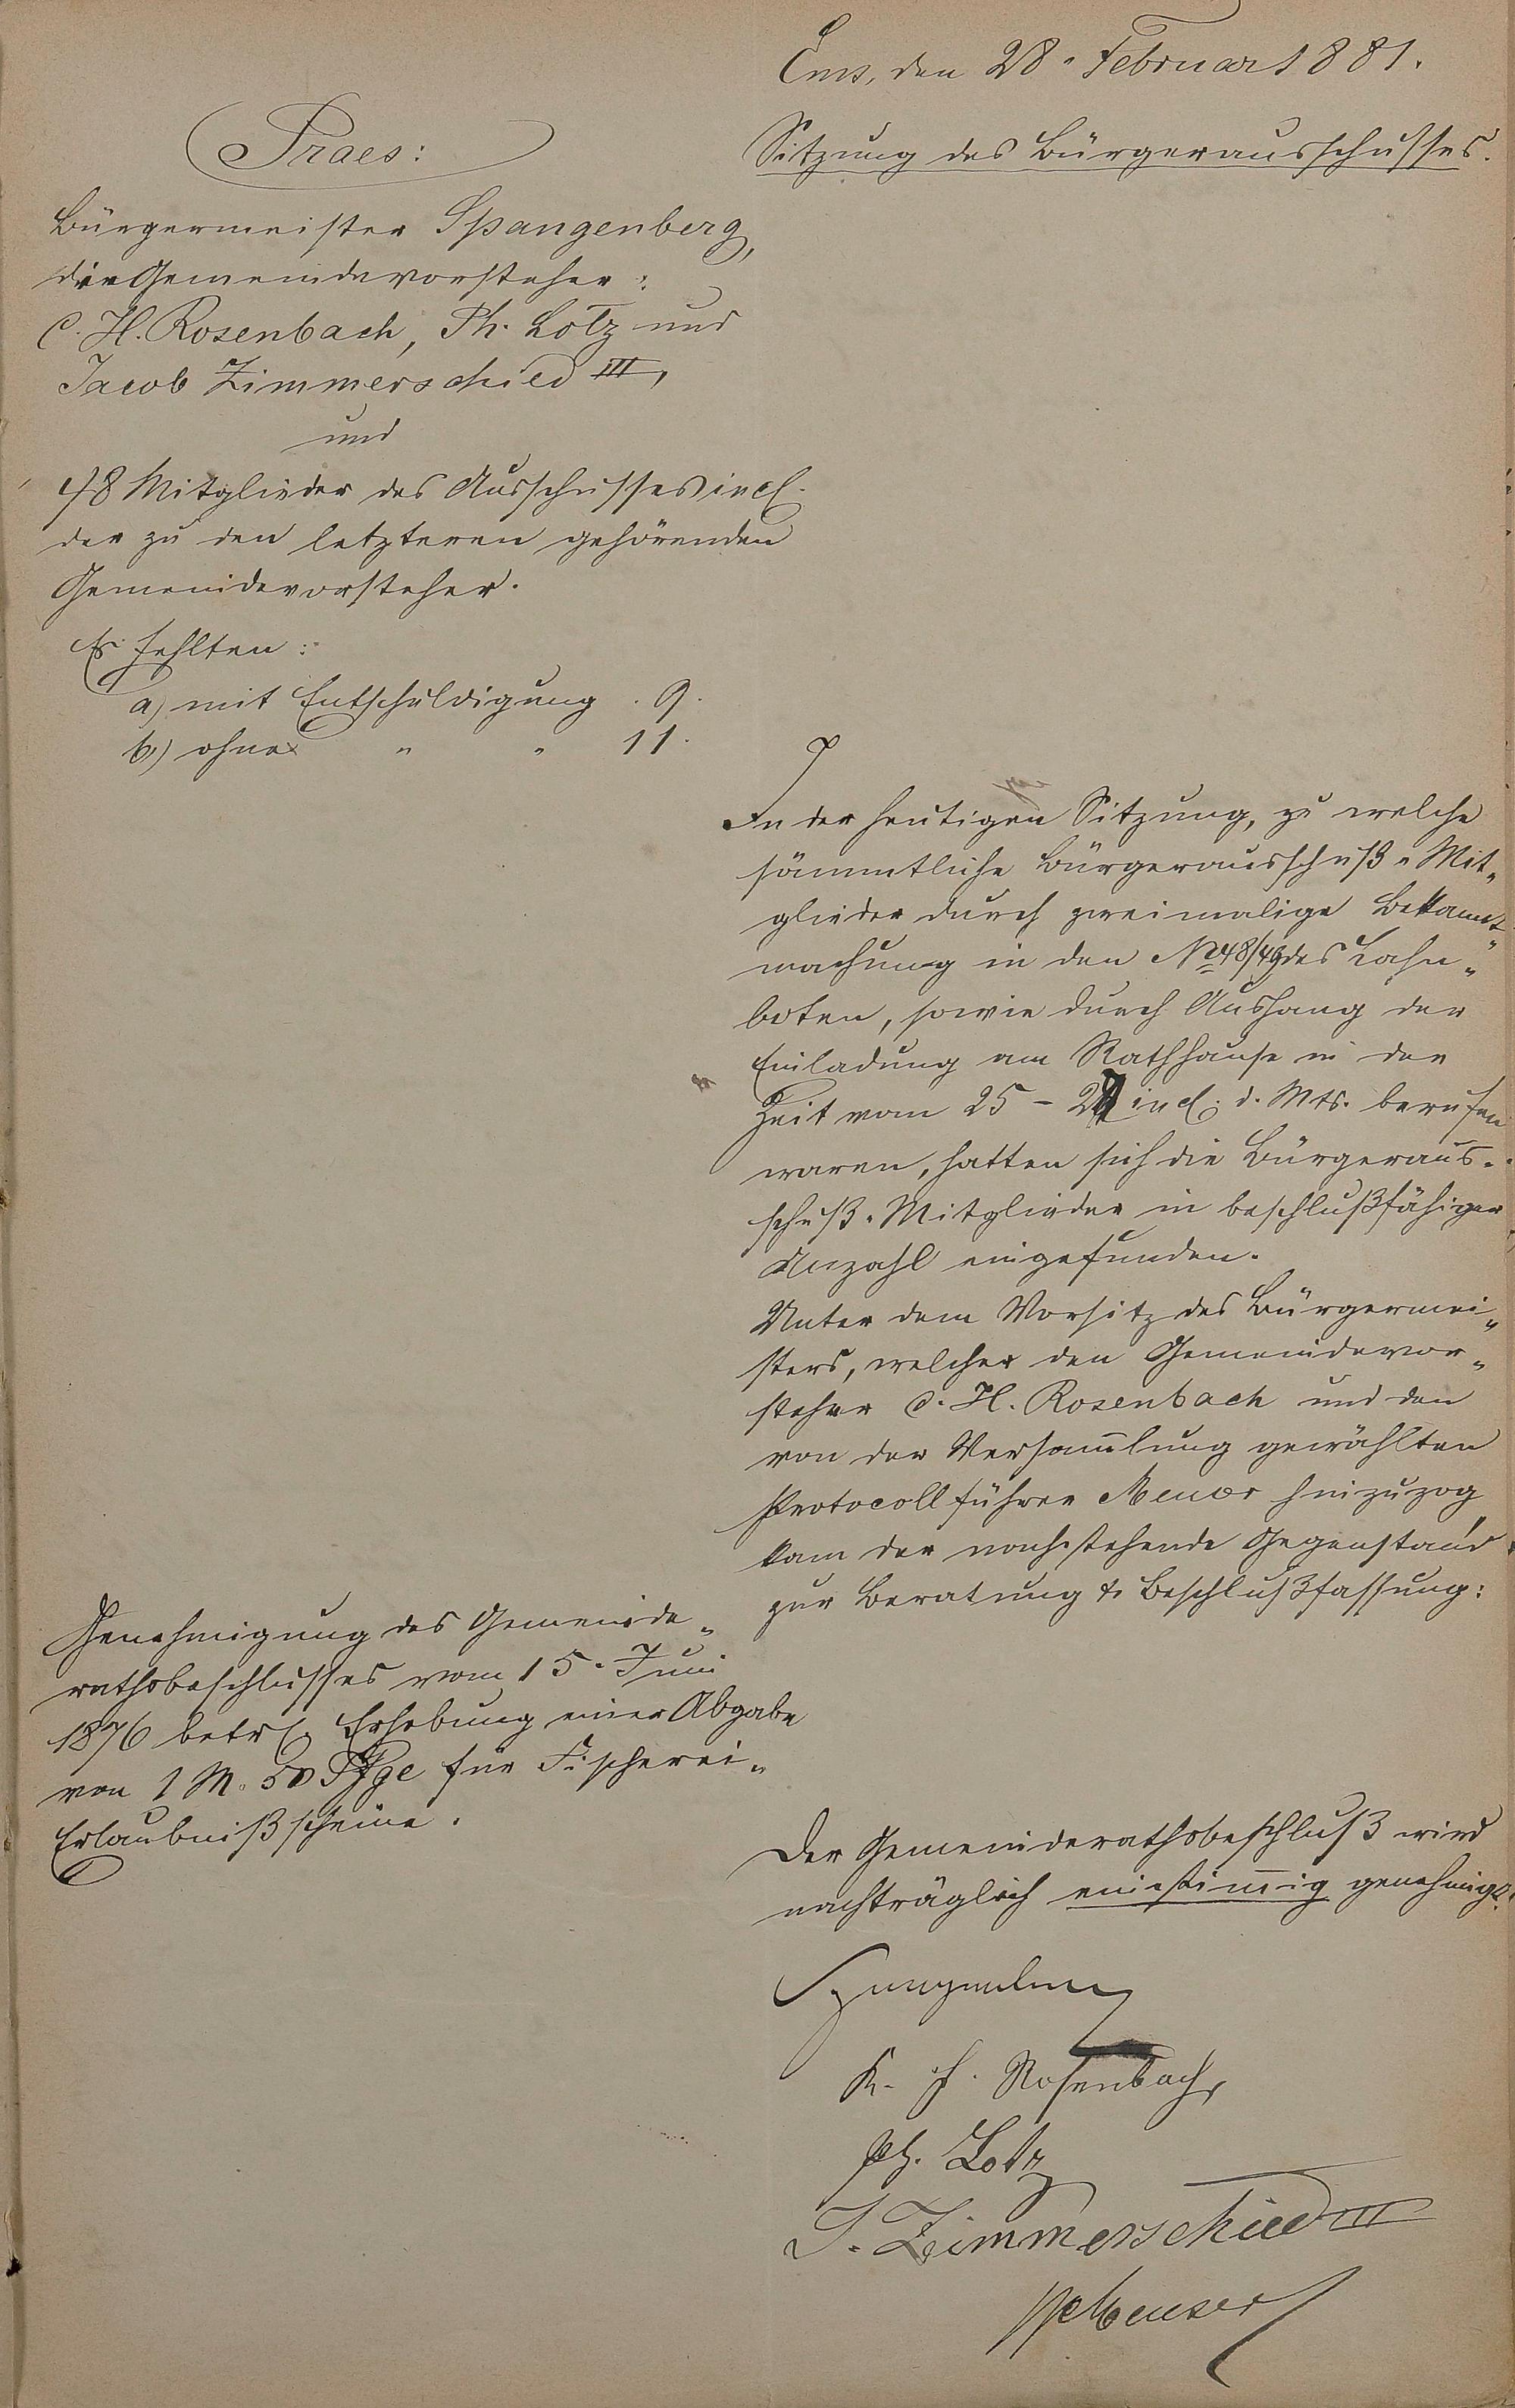 Ems, den 28. Februar 1881.
Sitzung des Bürgerausschusses.
Praes:
Bürgermeister Spangenberg,
die Gemeindevorsteher:
C. H. Rosenbach, Ph. Lotz und
Jacob Zimmerschied III,
und
48 Mitglieder des Ausschusses incl.
der zu den letzteren gehörenden
Gemeindevorsteher.
Es fehlten:
a) mit Entschuldigung . 9.
b) ohne " " 11.
In der heutigen Sitzung, zu welche
sämmtliche Bürgerausschuß-Mit-
glieder durch zweimalige Bekannt-
machung in den No 48/49 des Lahn-
boten, sowie durch Aushang der
Einladung am Rathhause in der
Zeit vom 25 - 28 incl. d. Mts. berufen
waren, hatten sich die Bürgeraus-
schuß-Mitglieder in beschlußfähiger
Anzahl eingefunden.
Unter dem Vorsitz des Bürgermei-
sters, welcher den Gemeindevor-
steher C. H. Rosenbach und den
von der Versam̄lung gewählten
Protocollführer Meuser hinzuzog,
kam der nachstehende Gegenstand
zur Beratung & Beschlußfassung:
Genehmigung des Gemeinde-
rathsbeschlusses vom 15. Juni
1876 betr. Erhebung einer Abgabe
von 1 M. 50 Pfge für Fischerei-
Erlaubnißscheine.
Der Gemeinderathsbeschluß wird
nachträglich einstim̄ig genehmigt.
Spangenberg
K. H. Rosenbach,
Ph. Lotz
J. Zimmerschied III
Meuser